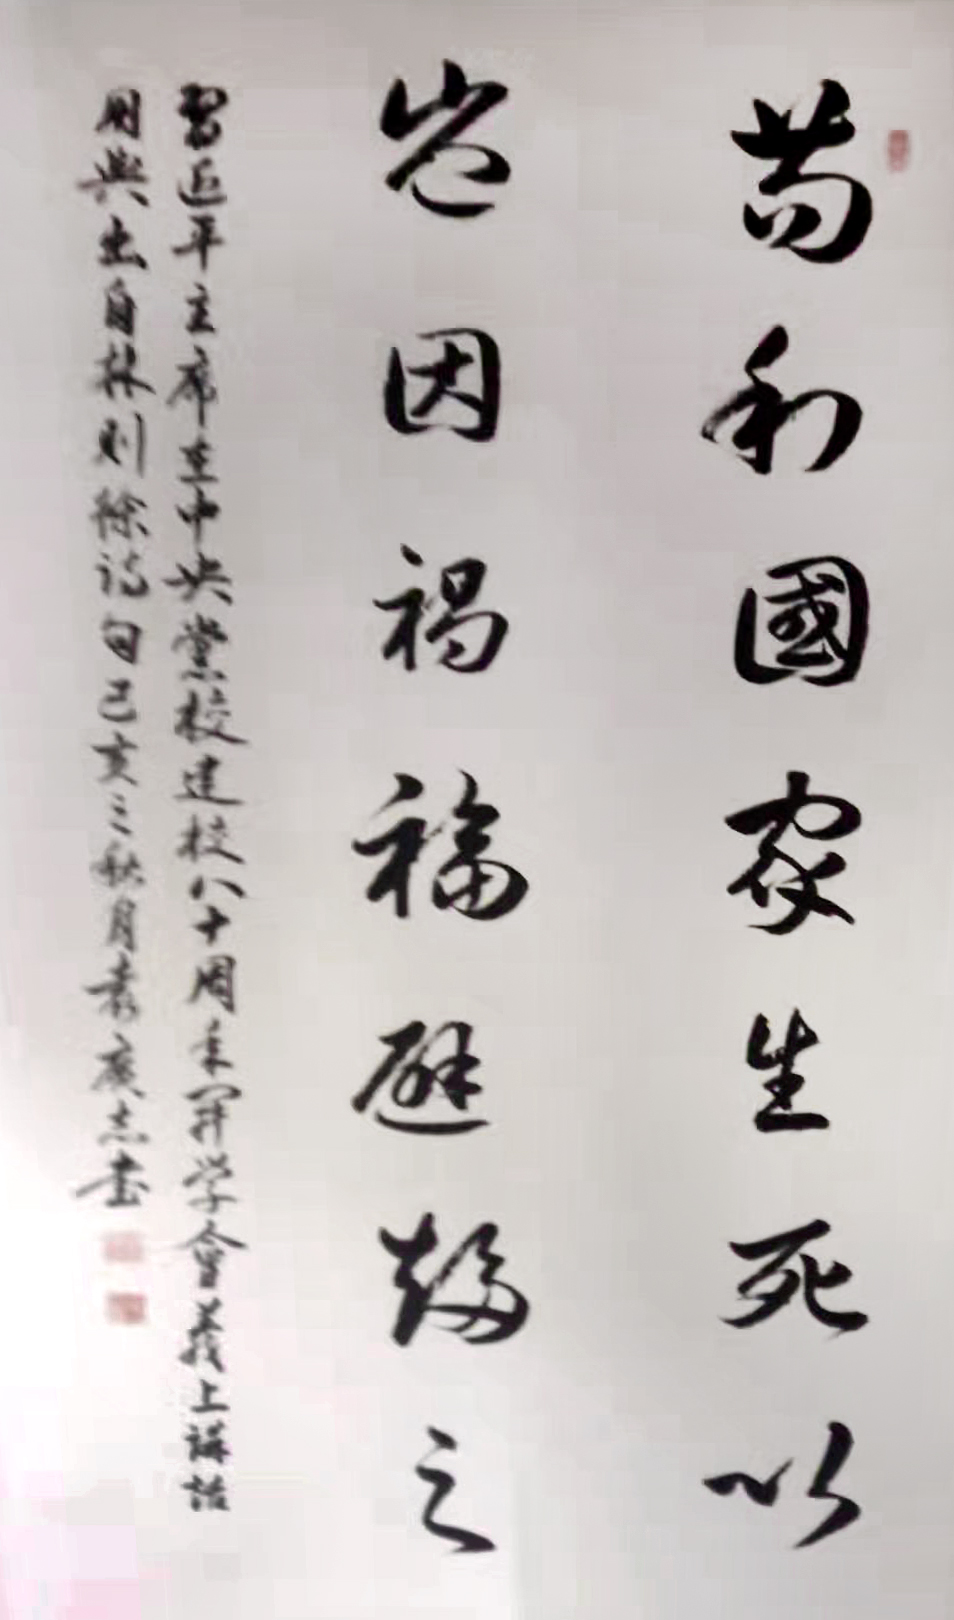 苟利國家生死以
岂因禍福避趨之
習近平主席在中央黨校建校八十周年開学會義上講話
用典出自林则徐詩句己亥之秋月袁廣志書